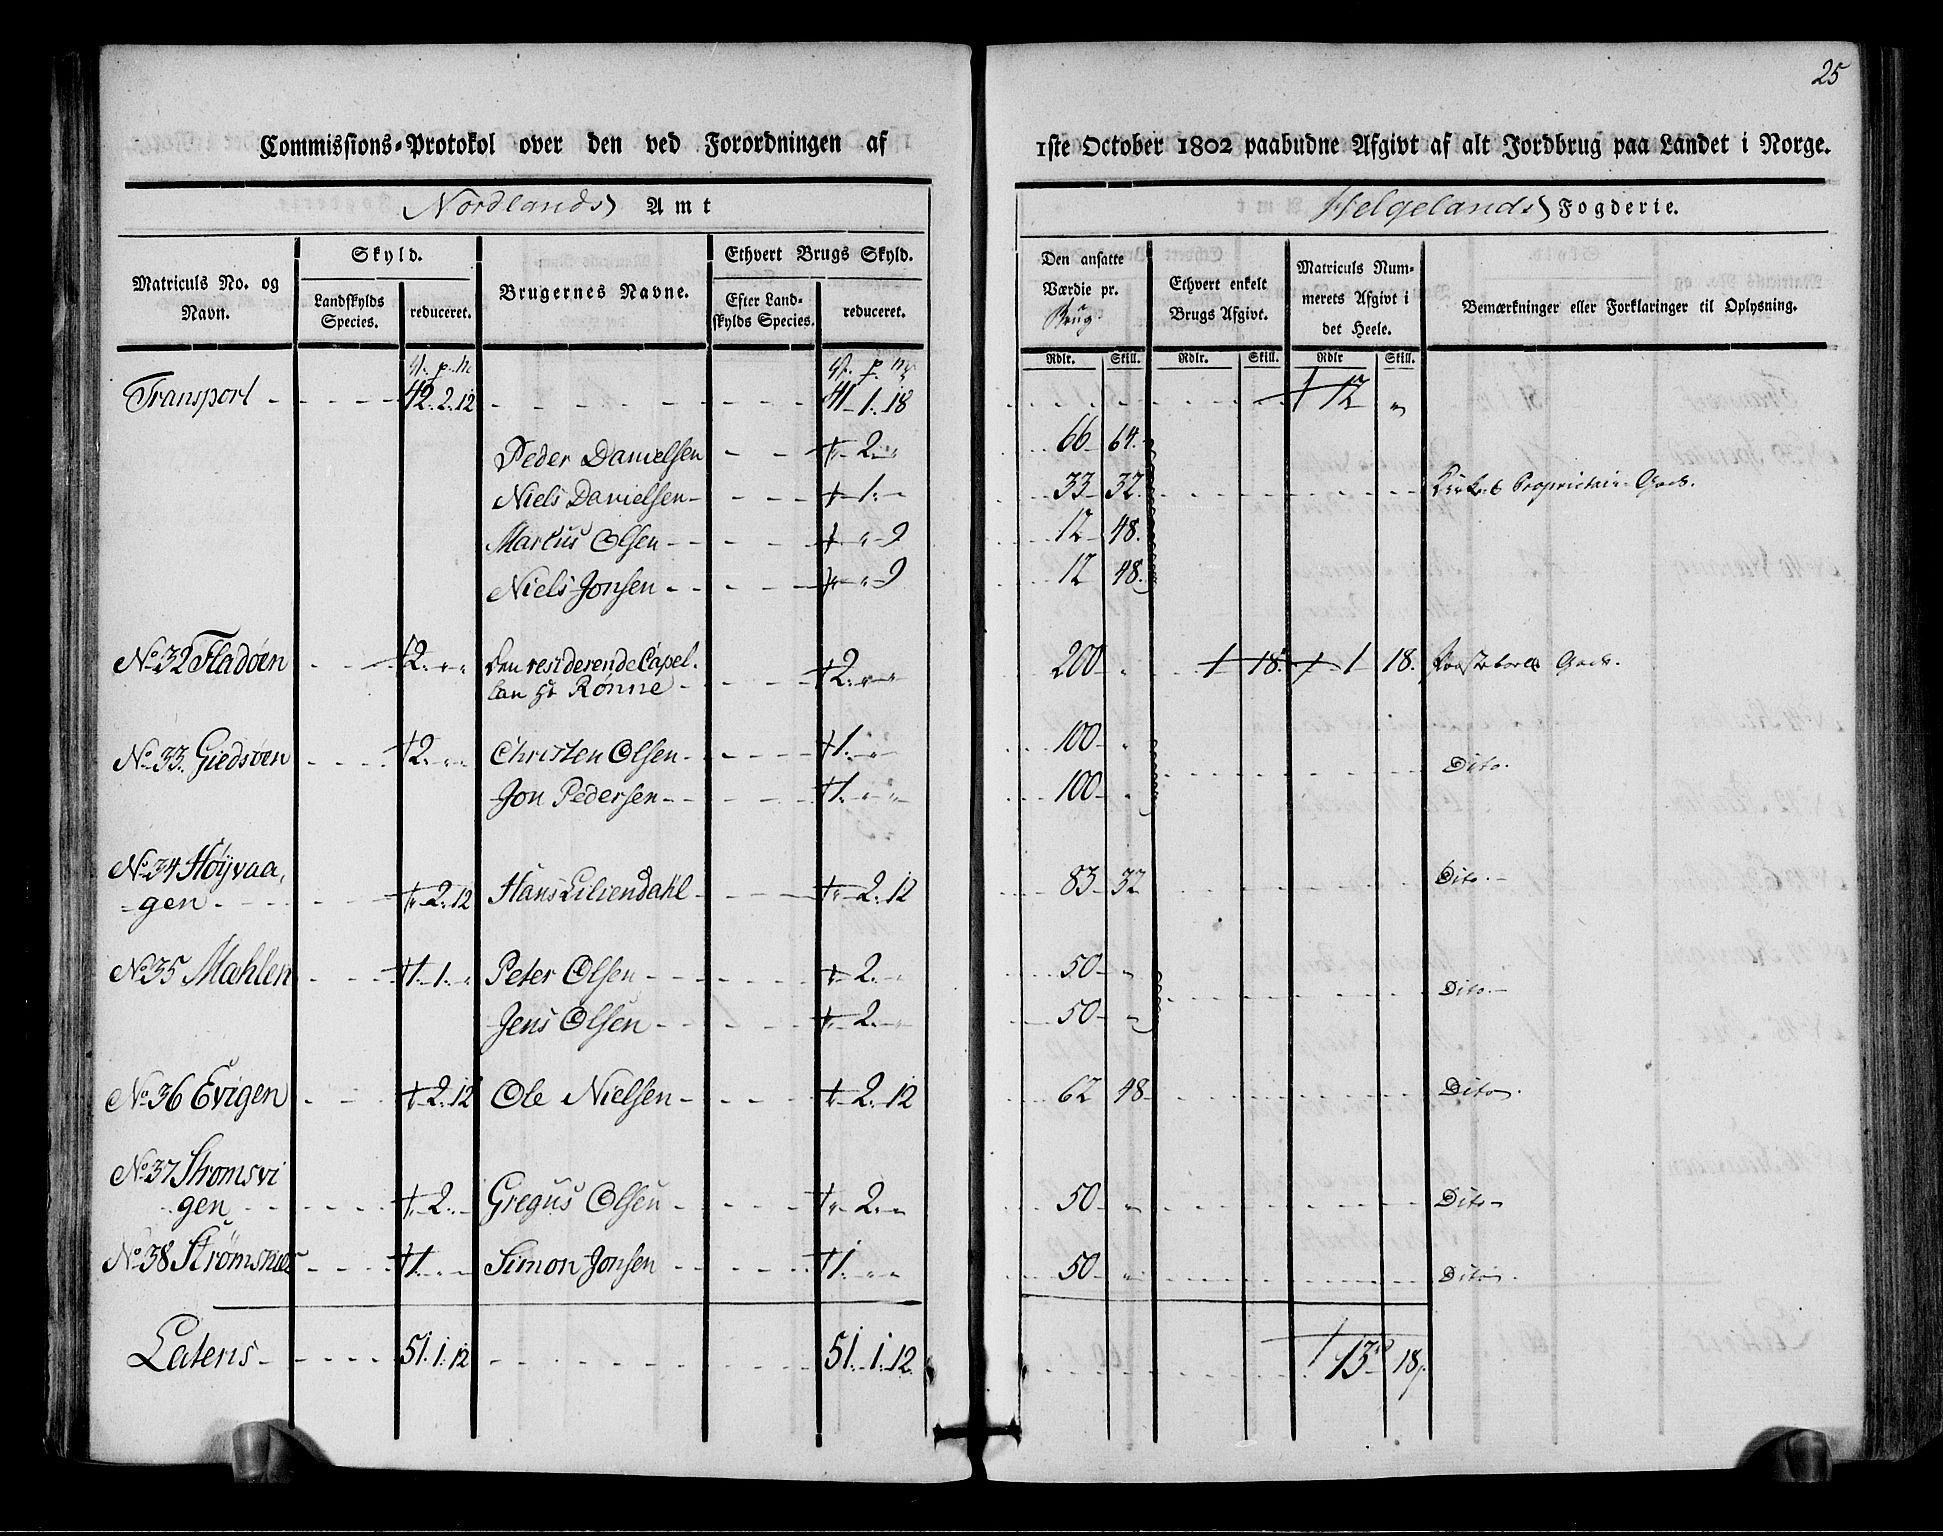 25
Commissions-Protokol over den ved Forordningen af 1ste October 1802 paabudne Afgivt af alt Jordbrug paa Landet i Norge.
Nordlands Amt Helgelands Fogderie.
Matriculs No. og Navn.
Skyld.
Landskylds Species.
reduceret.
Brugernes Navne.
Ethvert Brugs Skyld.
Efter Landskylds Species.
reduceret.
Den ansatte Værdie pr. Brug.
Ethvert enkelt Brugs Afgivt.
Matriculs Nummerets Afgivt i det Heele.
Bemærkninger eller Forklaringer til Oplysning.
Rdlr. Skill. Rdlr. Skill. Rdlr Skill.
Transport - 42. 2. 12 - 41 - 1. 18 12 "
Peder Danielsen - 2. " 66 64.
Niels Danielsen - 1. - 33 32. Proprietair Gods.
Markus Olsen - " - 9 12 48.
Niels Jonsen - " - 9 12 48.
No. 32 Fladøen 2. " " Den residerende Capel-
lan Hr Rønne - 2. " " 200 " 1 18. 1 18. Gods.
No. 33. Giedsöen 2. " " Christen Olsen - 1. " 100 "
Jon Pedersen - 1. " " 100 " Dito.
No. 34 Höyvaa-
gen - 2. 12 Hans Liliendahl - 2. 12 83 32 Dito. -
No. 35 Mæhlen 1. 1. " Peter Olsen - 2. " 50 "
Jens Olsen - 2. " 50 " Dito. -
No. 36 Evigen - 2. 12 Ole Nielsen - 2. 12 62 48 Dito.
No. 37 Strømsvi
gen - 2. Gregus Olsen - 2. " 50 " Dito -
No. 38 Strømsnæs 1. Simon Jonsen - 1. " " 50 " Dito.
Lateris - 51. 1. 12 - 51. 1. 12. 13 18